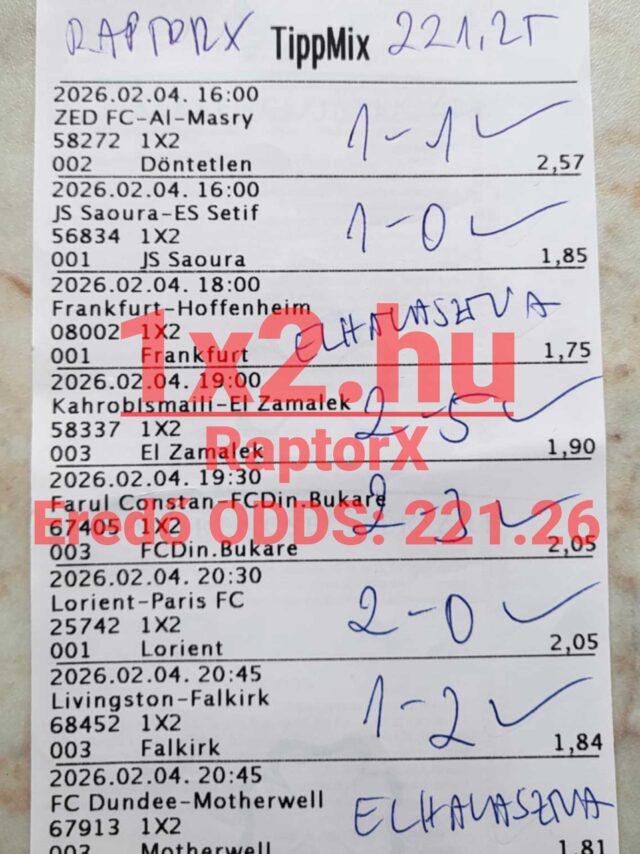 RAPTORX TippMix 221,25
2026.02.04. 16:00
ZED FC-Al-Masry
58272 1X2
1-1
002 Döntetlen 2,57
2026.02.04. 16:00
JS Saoura-ES Setif
56834 1X2
1-0
001 JS Saoura 1,85
2026.02.04. 18:00
Frankfurt-Hoffenheim
08002 1X2
ELHALASZTVA
001 Frankfurt 1,75
1x2.hu
2026.02.04. 19:00
KahrobIsmaili-El Zamalek
58337 1X2
2-5
003 El Zamalek 1,90
RaptorX
2026.02.04. 19:30
Farul Constan-FCDin.Bukare
67405 1X2
2-3
Eredő ODDS: 221.26
003 FCDin.Bukare 2,05
2026.02.04. 20:30
Lorient-Paris FC
25742 1X2
2-0
001 Lorient 2,05
2026.02.04. 20:45
Livingston-Falkirk
68452 1X2
1-2
003 Falkirk 1,84
2026.02.04. 20:45
FC Dundee-Motherwell
67913 1X2
ELHALASZTVA
003 Motherwell 1,81